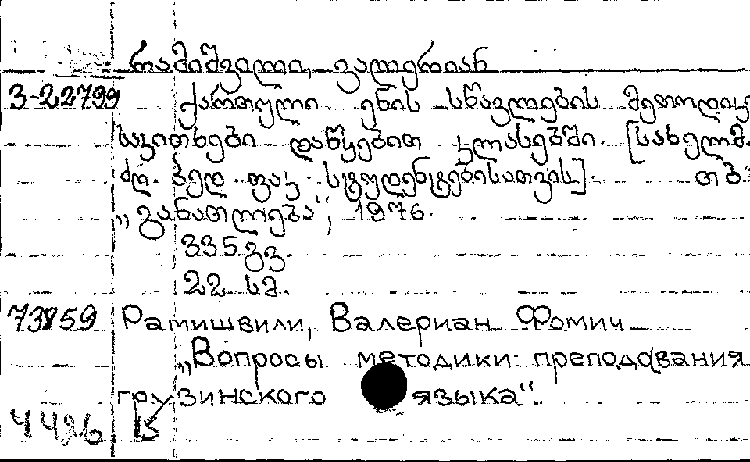 რამიშვილი, ვალერიან
3-22799 ქართული ენის სწავლების მეთოდიკ
საკითხები დაწყებით კლასებში. [სახელმ.
ძღ. პედ. ფაკ. სტუდენტებისათვის]. თბ.
„განათლება“, 1976.
335 გვ.
22 სმ.
73859 Рамишвили, Валериан Фомич
„Вопросы методики преподавания
грузинского языка“.
4496